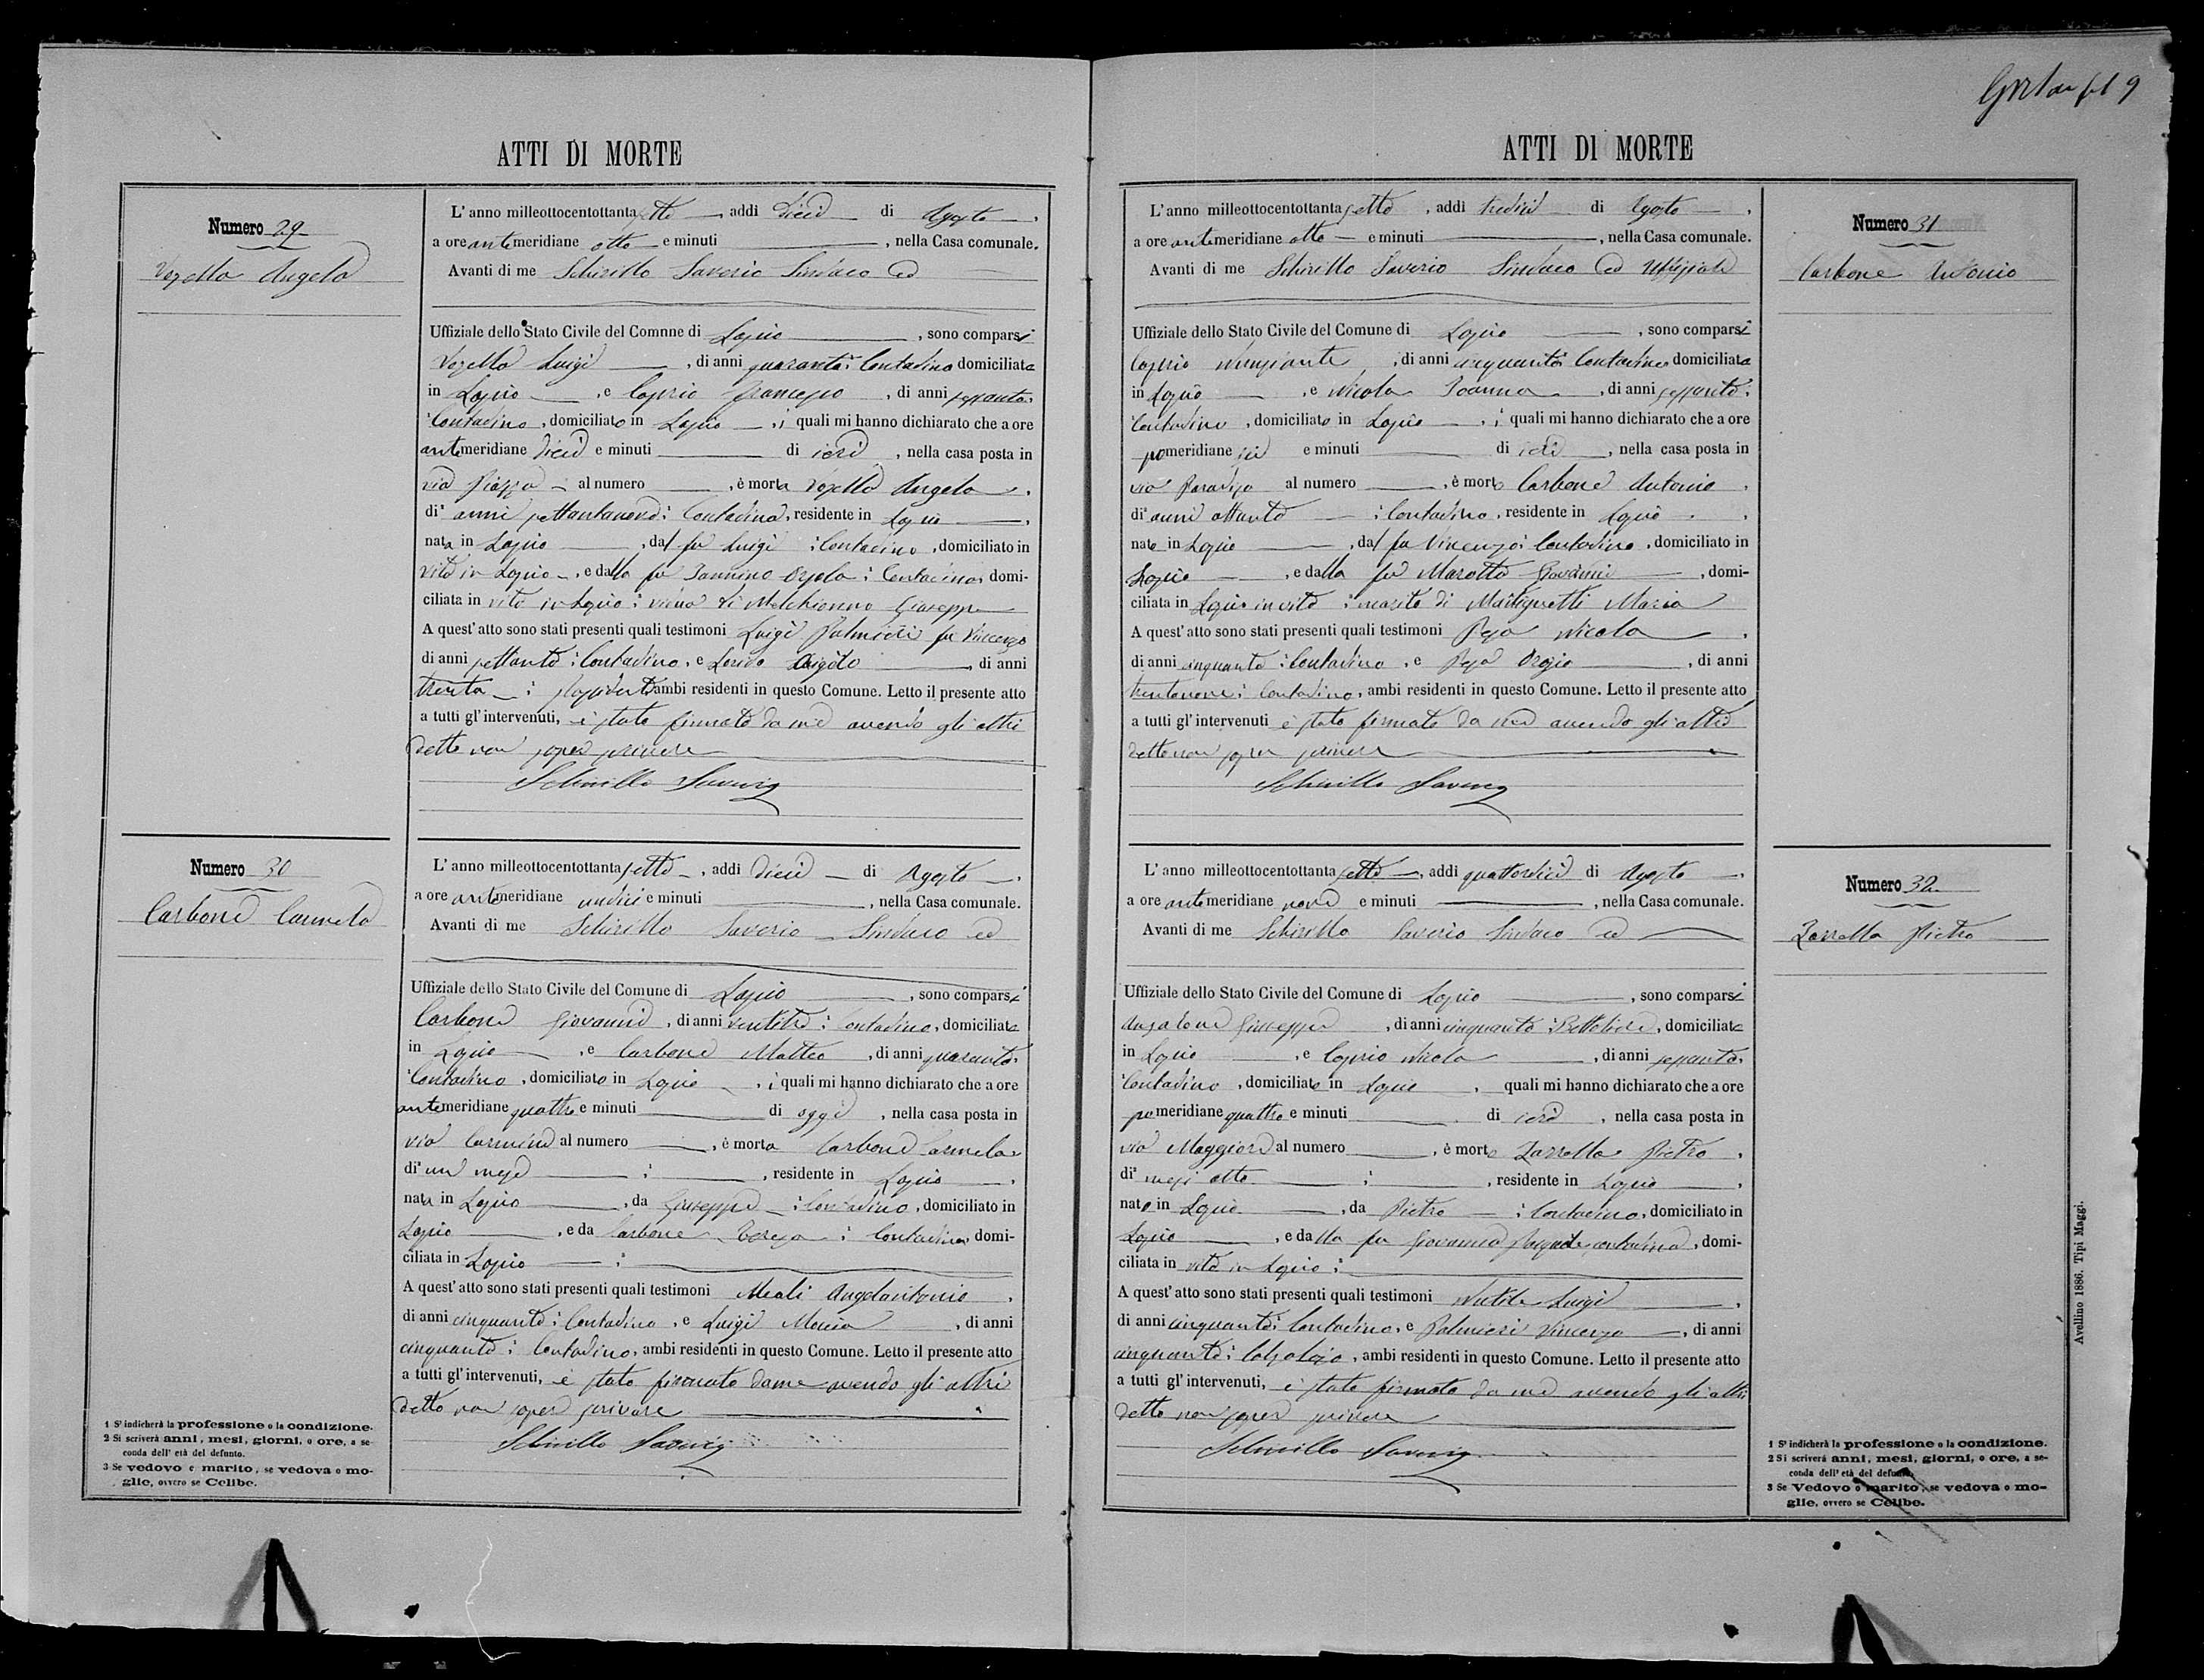 ATTI DI MORTE
Numero 29
Angela
L' anno milleottocentottantasette, addi dieci di Agosto,
a ore antimeridiane otto e minuti , nella Casa comunale.
Avanti di me Schirillo Saverio Sindaco ed
Uffiziale dello Stato Civile del Comnne di Lapio , sono comparsi
Luigi , di anni quaranta: Contadino domiciliato
in Lapio , e Caprio Francesco , di anni sessanta:
Contadino , domiciliato in Lapio , i quali mi hanno dichiarato che a ore
antimeridiane dieci e minuti di ieri , nella casa posta in
via Piazza al numero , è morta Angela ,
di anni settantanove: Contadina, residente in Lapio ,
nata in Lapio , dal fu Luigi : Contadino , domiciliato in
vita in Lapio , e dalla fu Iannino Orsola : Contadina, domi-
ciliata in vita in Lapio : di Melchionno Giuseppe
A quest' atto sono stati presenti quali testimoni Luigi Palmieri fu Vincenzo
di anni settanta : Contadino , e , di anni
trenta : ambi residenti in questo Comune. Letto il presente atto
a tutti gl' intervenuti, è stato firmato da me avendo gli altri
detto non saper scrivere
Schirillo Saverio
Numero 30
Carbone Carmela
L' anno milleottocentottantasette , addi dieci di Agosto ,
a ore antimeridiane undici e minuti , nella Casa comunale.
Avanti di me Schirillo Saverio Sindaco ed
Uffiziale dello Stato Civile del Comune di Lapio , sono comparsi
Carbone Giovanni , di anni ventitre : Contadino, domiciliato
in Lapio , e Carbone Matteo , di anni quaranta:
Contadino , domiciliato in Lapio , i quali mi hanno dichiarato che a ore
antimeridiane quattro e minuti di oggi , nella casa posta in
via Carmine al numero , è morta Carbone Carmela
di un mese : , residente in Lapio ,
nata in Lapio , da Giuseppe : Contadino , domiciliato in
Lapio , e da Carbone Teresa : Contadina, domi-
ciliata in Lapio :
A quest' atto sono stati presenti quali testimoni Meoli Angelantonio ,
di anni cinquanta : Contadino , e Luigi , di anni
cinquanta : Contadino, ambi residenti in questo Comune. Letto il presente atto
a tutti gl' intervenuti, è stato firmato da me avendo gli altri
detto non saper scrivere
Schirillo Saverio
1 S' indicherà la professione o la condizione.
2 Si scriverà anni, mesi, giorni, o ore, a se-
conda dell' età del defunto.
3 Se vedovo e marito, se vedova o mo-
glie, ovvero se Celibe.
9
ATTI DI MORTE
Numero 31
Carbone Antonio
L' anno milleottocentottantasette , addi tredici di Agosto ,
a ore antimeridiane otto e minuti , nella Casa comunale.
Avanti di me Schirillo Saverio Sindaco ed Uffiziale
Uffiziale dello Stato Civile del Comune di Lapio , sono comparsi
Caprio , di anni cinquanta: Contadino domiciliato
in Lapio , e Nicola Ioanna , di anni sessanta:
Contadino , domiciliato in Lapio , i quali mi hanno dichiarato che a ore
pomeridiane sei e minuti di ieri , nella casa posta in
via Paradiso al numero , è morto Carbone Antonio ,
di anni ottanta : Contadino , residente in Lapio ,
nato in Lapio , dal fu Vincenzo: Contadino , domiciliato in
Lapio , e dalla fu Marotta , domi-
ciliata in Lapio in vita : marito di Maria
A quest' atto sono stati presenti quali testimoni Nicola ,
di anni cinquanta : Contadino , e , di anni
trentanove : Contadino , ambi residenti in questo Comune. Letto il presente atto
a tutti gl' intervenuti è stato firmato da me avendo gli altri
detto non saper scrivere
Schirillo Saverio
Numero 32
Zarrella Pietro
L' anno milleottocentottantasette , addi quattordici di Agosto ,
a ore antimeridiane nove e minuti , nella Casa comunale.
Avanti di me Schirillo Saverio Sindaco ed
Uffiziale dello Stato Civile del Comune di Lapio , sono comparsi
Giuseppe , di anni cinquanta : , domiciliato
in Lapio , e Caprio Nicola , di anni sessanta:
Contadino , domiciliato in Lapio , quali mi hanno dichiarato che a ore
pomeridiane quattro e minuti di ieri , nella casa posta in
via Maggiore al numero , è morto Zarrella Pietro ,
di mesi otto : , residente in Lapio ,
nato in Lapio , da Pietro : Contadino, domiciliato in
Lapio , e dalla fu Giovanna contadina , domi-
ciliata in vita in Lapio :
A quest' atto sono stati presenti quali testimoni Luigi ,
di anni cinquanta: Contadino, e Palmieri Vincenzo , di anni
cinquanta : Calzolaio , ambi residenti in questo Comune. Letto il presente atto
a tutti gl' intervenuti, è stato firmato da me avendo gli altri
detto non saper scrivere
Schirillo Saverio
1 S' indicherà la professione o la condizione.
2 Si scriverà anni, mesi, giorni, o ore, a se-
conda dell' età del defunto.
3 Se Vedovo o marito, se vedova o mo-
glie, ovvero se Celibe.
Avellino 1886. Tipi Maggi.